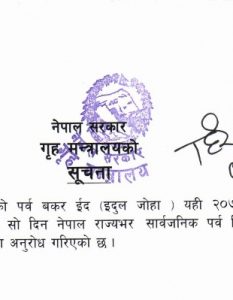 नेपाल सरकार
गृह मन्त्रालयको
सूचना
को पर्व बकर ईद (इदुल जोहा ) यही २०७
सो दिन नेपाल राज्यभर सार्वजनिक पर्व
अनुरोध गरिएको छ ।